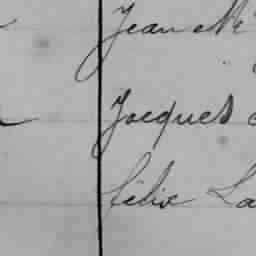 Jean
Jacques
Félix La